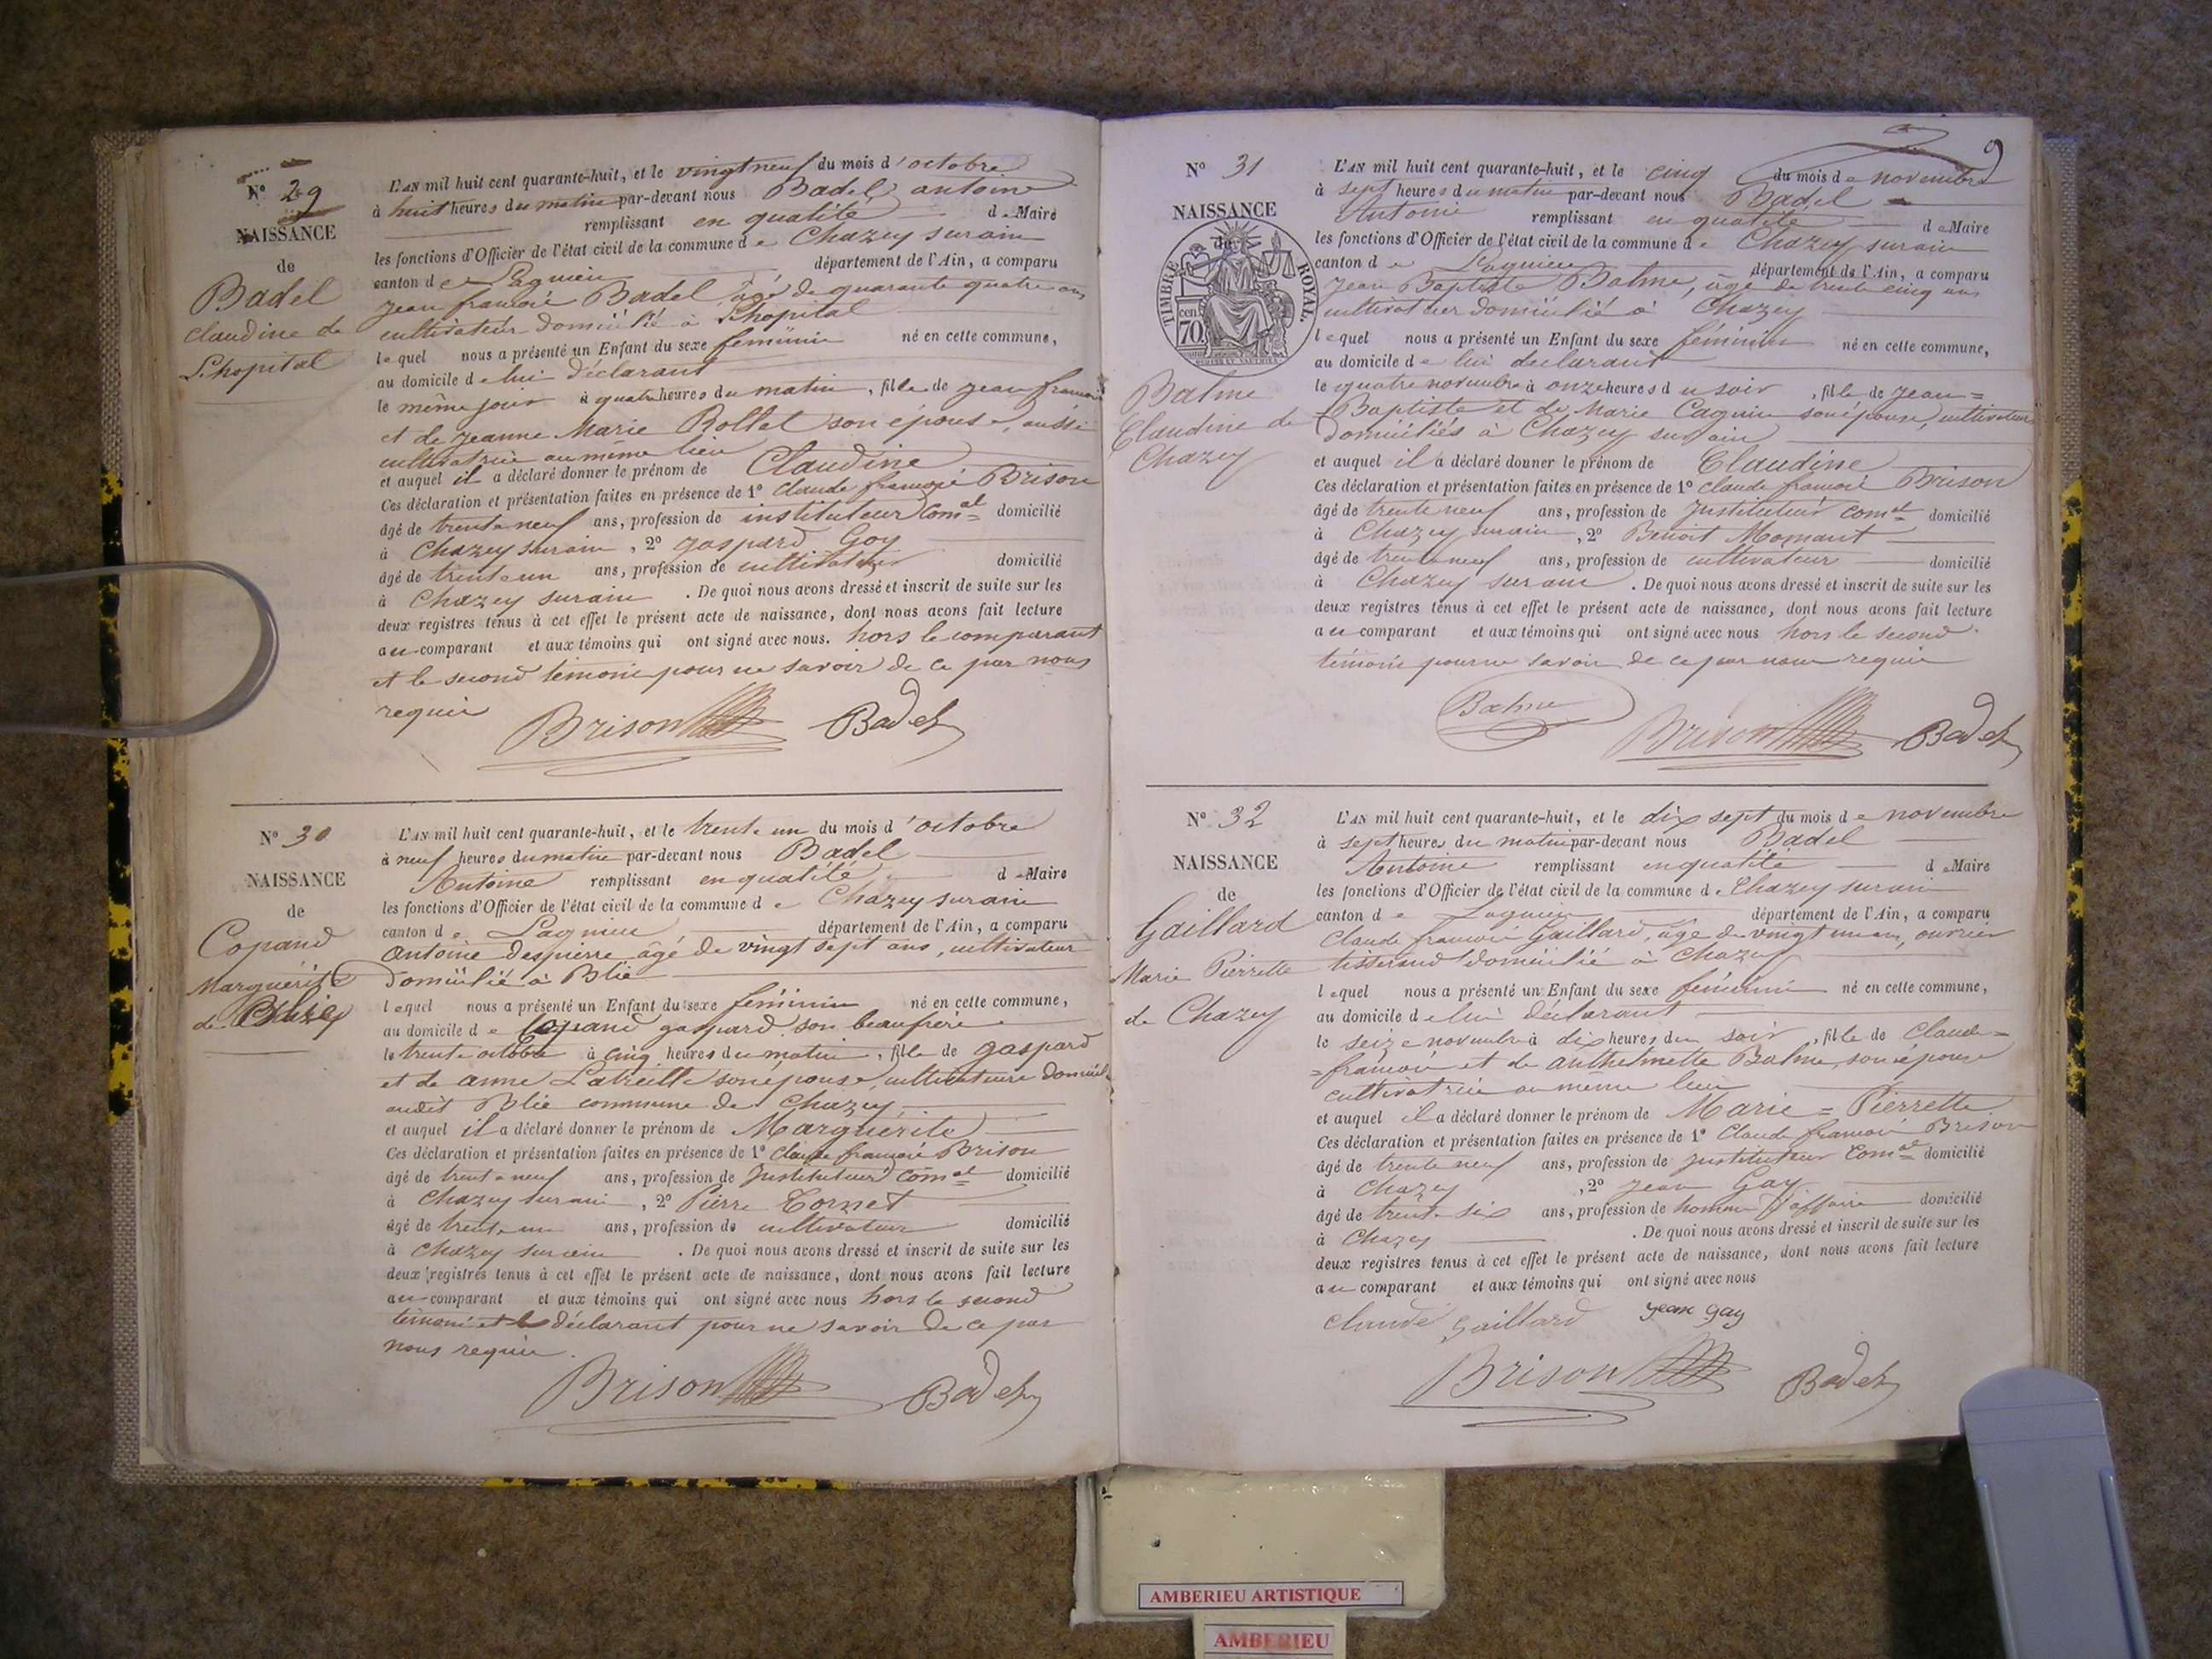 N° 29
NAISSANCE
de
Badel
Claudine de
L'hopital
L'AN mil huit cent quarante-huit, et le vingt neuf du mois d'octobre
à huit heures du matin par-devant nous Badel antoine
remplissant en qualité de Maire
les fonctions d'Officier de l'état civil de la commune de Chazey sur ain
canton de Lagnieu département de l'Ain, a comparu
jean françois Badel âgé de quarante quatre ans
cultivateur domicilié à L'hopital
lequel nous a présenté un Enfant du sexe féminin né en cette commune,
au domicile de lui déclarant
le même jour à quatre heures du matin, fille de jean françois
et de jeanne Marie Rollet son épouse, aussi
cultivatrice au même lieu
et auquel il a déclaré donner le prénom de Claudine
Ces déclaration et présentation faites en présence de 1° Claude françois Brison
âgé de trente neuf ans, profession de instituteur Comal domicilié
à Chazey sur ain, 2° gaspard Goy
âgé de trente un ans, profession de cultivateur domicilié
à Chazey sur ain. De quoi nous avons dressé et inscrit de suite sur les
deux registres tenus à cet effet le présent acte de naissance, dont nous avons fait lecture
au comparant et aux témoins qui ont signé avec nous. hors le comparant
et le second témoin pour ne savoir de ce par nous
requis
Brison Badel
N° 30
NAISSANCE
de
Copand
Marguerite
de Blie
L'AN mil huit cent quarante-huit, et le trente un du mois d'octobre
à neuf heures du matin par-devant nous Badel
Antoine remplissant en qualité de Maire
les fonctions d'Officier de l'état civil de la commune de Chazey sur ain
canton de Lagnieu département de l'Ain, a comparu
antoine Despierre âgé de vingt sept ans, cultivateur
domicilié à Blie
lequel nous a présenté un Enfant du sexe féminin né en cette commune,
au domicile de Copand gaspard son beaufrère
le trente octobre à cinq heures du matin, fille de gaspard
et de anne Latreille son épouse, cultivateurs
audit Blie commune de Chazey
et auquel il a déclaré donner le prénom de Marguerite
Ces déclaration et présentation faites en présence de 1° Claude françois Brison
âgé de trente neuf ans, profession de Instituteur Comal domicilié
à Chazey sur ain, 2° Pierre Cornet
âgé de trente un ans, profession de cultivateur domicilié
à Chazey sur ain. De quoi nous avons dressé et inscrit de suite sur les
deux registres tenus à cet effet le présent acte de naissance, dont nous avons fait lecture
au comparant et aux témoins qui ont signé avec nous hors le second
témoin et le déclarant pour ne savoir de ce par
nous requis.
Brison Badel
9
N° 31
NAISSANCE
de
TIMBRE ROYAL.
70 cen
Balme
Claudine de
Chazey
L'AN mil huit cent quarante-huit, et le cinq du mois de novembre
à sept heures du matin par-devant nous Badel
Antoine remplissant en qualité de Maire
les fonctions d'Officier de l'état civil de la commune de Chazey sur ain
canton de Lagnieu département de l'Ain, a comparu
Jean Baptiste Balme, âgé de trente cinq ans
cultivateur domicilié à Chazey
lequel nous a présenté un Enfant du sexe féminin né en cette commune,
au domicile de lui déclarant
le quatre novembre à onze heures du soir, fille de Jean=
Baptiste et de Marie Caguin son épouse, cultivateurs
domiciliés à Chazey sur ain
et auquel il a déclaré donner le prénom de Claudine
Ces déclaration et présentation faites en présence de 1° Claude françois Brison
âgé de trente neuf ans, profession de Instituteur comal domicilié
à Chazey sur ain, 2° Benoit Momant
âgé de trente neuf ans, profession de cultivateur domicilié
à Chazey sur ain. De quoi nous avons dressé et inscrit de suite sur les
deux registres tenus à cet effet le présent acte de naissance, dont nous avons fait lecture
au comparant et aux témoins qui ont signé avec nous hors le second
témoin pour ne savoir de ce par nous requis
Balme
Brison Badel
N° 32
NAISSANCE
de
Gaillard
Marie Pierrette
de Chazey
L'AN mil huit cent quarante-huit, et le dix sept du mois de novembre
à sept heures du matin par-devant nous Badel
Antoine remplissant en qualité de Maire
les fonctions d'Officier de l'état civil de la commune de Chazey sur ain
canton de Lagnieu département de l'Ain, a comparu
Claude françois Gaillard, âgé de vingt un ans, ouvrier
tisserand domicilié à Chazey
lequel nous a présenté un Enfant du sexe féminin né en cette commune,
au domicile de lui déclarant
le seize novembre à dix heures du soir, fille de Claude=
=françois et de anthelmette Balme, son épouse
cultivatrice au même lieu
et auquel il a déclaré donner le prénom de Marie=Pierrette
Ces déclaration et présentation faites en présence de 1° Claude françois Brison
âgé de trente neuf ans, profession de Instituteur Comal domicilié
à Chazey, 2° jean Gay
âgé de trente six ans, profession de homme d'affaire domicilié
à Chazey. De quoi nous avons dressé et inscrit de suite sur les
deux registres tenus à cet effet le présent acte de naissance, dont nous avons fait lecture
au comparant et aux témoins qui ont signé avec nous
Claude Gaillard jean gay
Brison Badel
AMBERIEU ARTISTIQUE
AMBERIEU